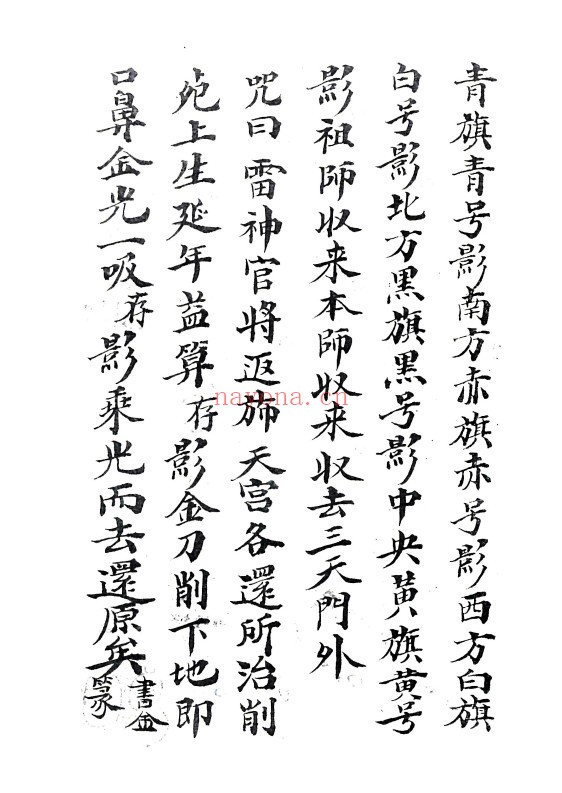 青旗青号影南方赤旗赤号影西方白旗
白号影北方黑旗黑号影中央黄旗黄号
影祖師收来本師收来收去三天門外
咒曰雷神官將返斾天宮各還所治削
死上生延年益算存影金刀削下地即
口鼻金光一吸存影乘光而去還原矣
書金
篆
nayona.cn